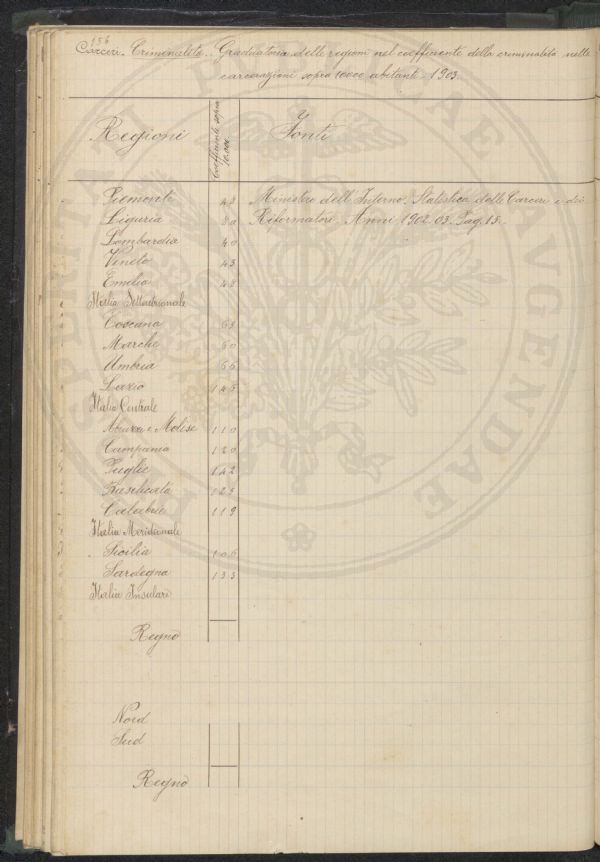 156
Carceri. Criminalità. Graduatoria delle regioni nel coefficiente della criminalità nelle
carcerazioni sopra 10000 abitanti. 1903.
Regioni
Coefficiente sopra 10.000
Fonti
Piemonte 48 Ministro dell'Interno. Statistica delle Carceri e dei
Liguria 80 Riformatori. Anni 1902-03. Pag. 15.
Lombardia 40
Veneto 43
Emilia 48
Italia Settentrionale
Toscana 63
Marche 60
Umbria 66
Lazio 145
Italia Centrale
Abruzzi e Molise 110
Campania 120
Puglie 142
Basilicata 125
Calabrie 119
Italia Meridionale
Sicilia 106
Sardegna 133
Italia Insulare
Regno
Nord
Sud
Regno